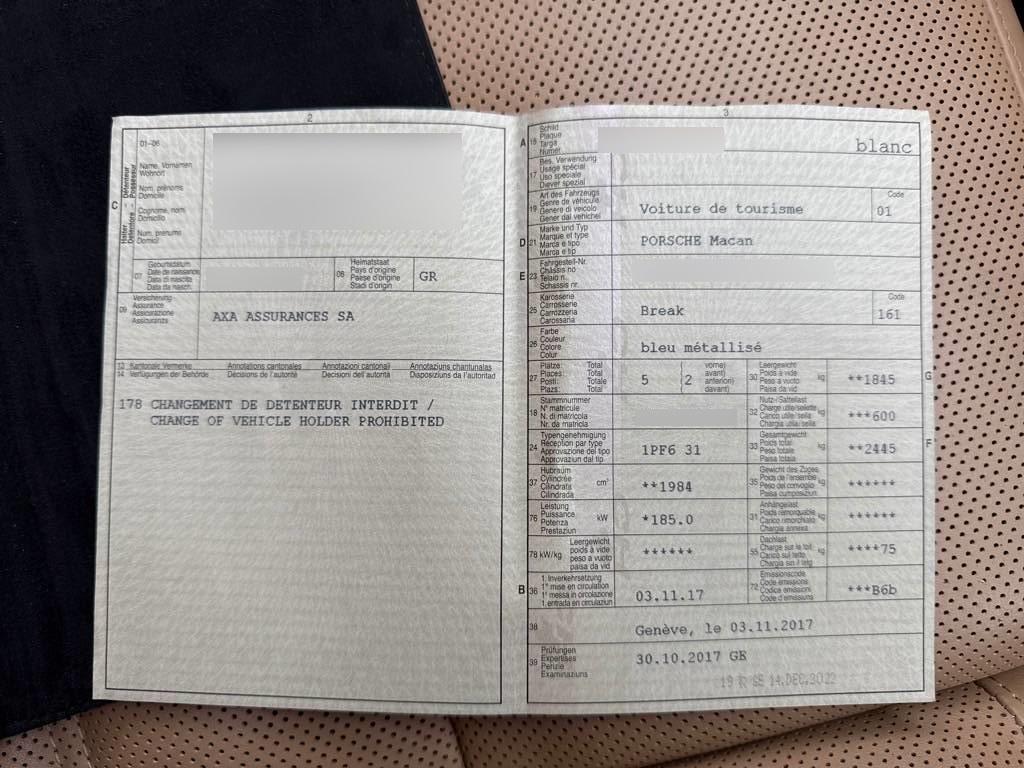 2
01-06
Halter Détenteur
Detentore Possessur
C
Name, Vornamen
Wohnort
Nom, prénoms
Domicile
Cognome, nomi
Domicilio
Num, prenums
Domicil
07
Geburtsdatum
Date de naissance
Data di nascita
Data da nasch.
08
Heimatstaat
Pays d'origine
Paese d'origine
Stadi d'origin
GR
09
Versicherung
Assurance
Assicurazione
Assicuranza
AXA ASSURANCES SA
13 Kantonale Vermerke Annotations cantonales Annotazioni cantonali Annotaziuns chantunalas
14 Verfügungen der Behörde Décisions de l'autorité Decisioni dell'autorità Disposiziuns da l'autoritad
178 CHANGEMENT DE DETENTEUR INTERDIT /
CHANGE OF VEHICLE HOLDER PROHIBITED
3
A 15
Schild
Plaque
Targa
Numer
blanc
17
Bes. Verwendung
Usage spécial
Uso speciale
Diever spezial
19
Art des Fahrzeugs
Genre de véhicule
Genere di veicolo
Gener dal vehichel
Voiture de tourisme
Code
01
D 21
Marke und Typ
Marque et type
Marca e tipo
Marca e tip
PORSCHE Macan
E 23
Fahrgestell-Nr.
Châssis no
Telaio n.
Schassis nr.
25
Karosserie
Carrosserie
Carrozzeria
Carossaria
Break
Code
161
26
Farbe
Couleur
Colore
Colur
bleu métallisé
27
Plätze: Total
Places: Total
Posti: Totale
Plazs: Total
5
(2
vorne)
avant)
anteriori)
davant)
30
Leergewicht
Poids à vide
Peso a vuoto
Paisa da vid
kg
**1845
G
18
Stammnummer
N° matricule
N. di matricola
Nr. da matricla
32
Nutz-/Sattellast
Charge utile/sellette
Carico utile/sella
Chargia utila/sella
kg
***600
24
Typengenehmigung
Réception par type
Approvazione del tipo
Approvaziun dal tip
1PF6 31
33
Gesamtgewicht
Poids total
Peso totale
Paisa totala
kg
**2445
F
37
Hubraum
Cylindrée
Cilindrata
Cilindrada
cm³
**1984
35
Gewicht des Zuges
Poids de l'ensemble
Peso del convoglio
Paisa cumposiziun
kg
******
76
Leistung
Puissance
Potenza
Prestaziun
kW
*185.0
31
Anhängelast
Poids remorquable
Carico rimorchiato
Chargia annexa
kg
******
78 kW/kg
Leergewicht
poids à vide
peso a vuoto
paisa da vid
******
55
Dachlast
Charge sur le toit
Carico sul tetto
Chargia sin il tetg
kg
****75
B 36
1. Inverkehrsetzung
1re mise en circulation
1a messa in circolazione
1. entrada en circulaziun
03.11.17
72
Emissionscode
Code émissions
Codice emissioni
Code d'emissiuns
***B6b
38
Genève, le 03.11.2017
39
Prüfungen
Expertises
Perizie
Examinaziuns
30.10.2017 GE
14.DEC.2022